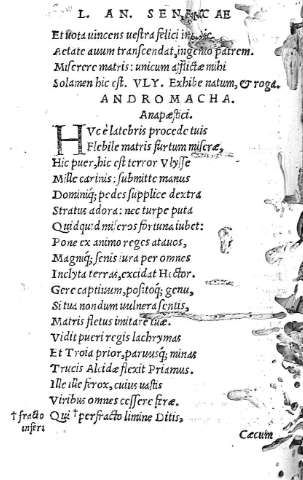 L. AN. SENECAE
Et uota uincens uestra felici indole,
Aetate auum transcendat, ingenio patrem.
Miserere matris: unicum afflictæ mihi
Solamen hic est. VLY. Exhibe natum, & roga.
ANDROMACHA.
Anapæstici.
HVc è latebris procede tuis
Flebile matris furtum miseræ,
Hic puer, hic est terror Vlysse
Mille carinis: submitte manus
Dominiq; pedes supplice dextra
Stratus adora: nec turpe puta
Quidquid miseros fortuna iubet:
Pone ex animo reges atauos,
Magniq; senis iura per omnes
Inclyta terras, excidat Hector.
Gere captiuum, positoq; genu,
Si tua nondum uulnera sentis,
Matris fletus imitare tuæ.
Vidit pueri regis lachrymas
Et Troia prior, paruusq; minas
Trucis Alcidæ flexit Priamus.
Ille ille ferox, cuius uastis
Viribus omnes cessere feræ.
† fracto Qui † perfracto limine Ditis,
inferi
Cæcum